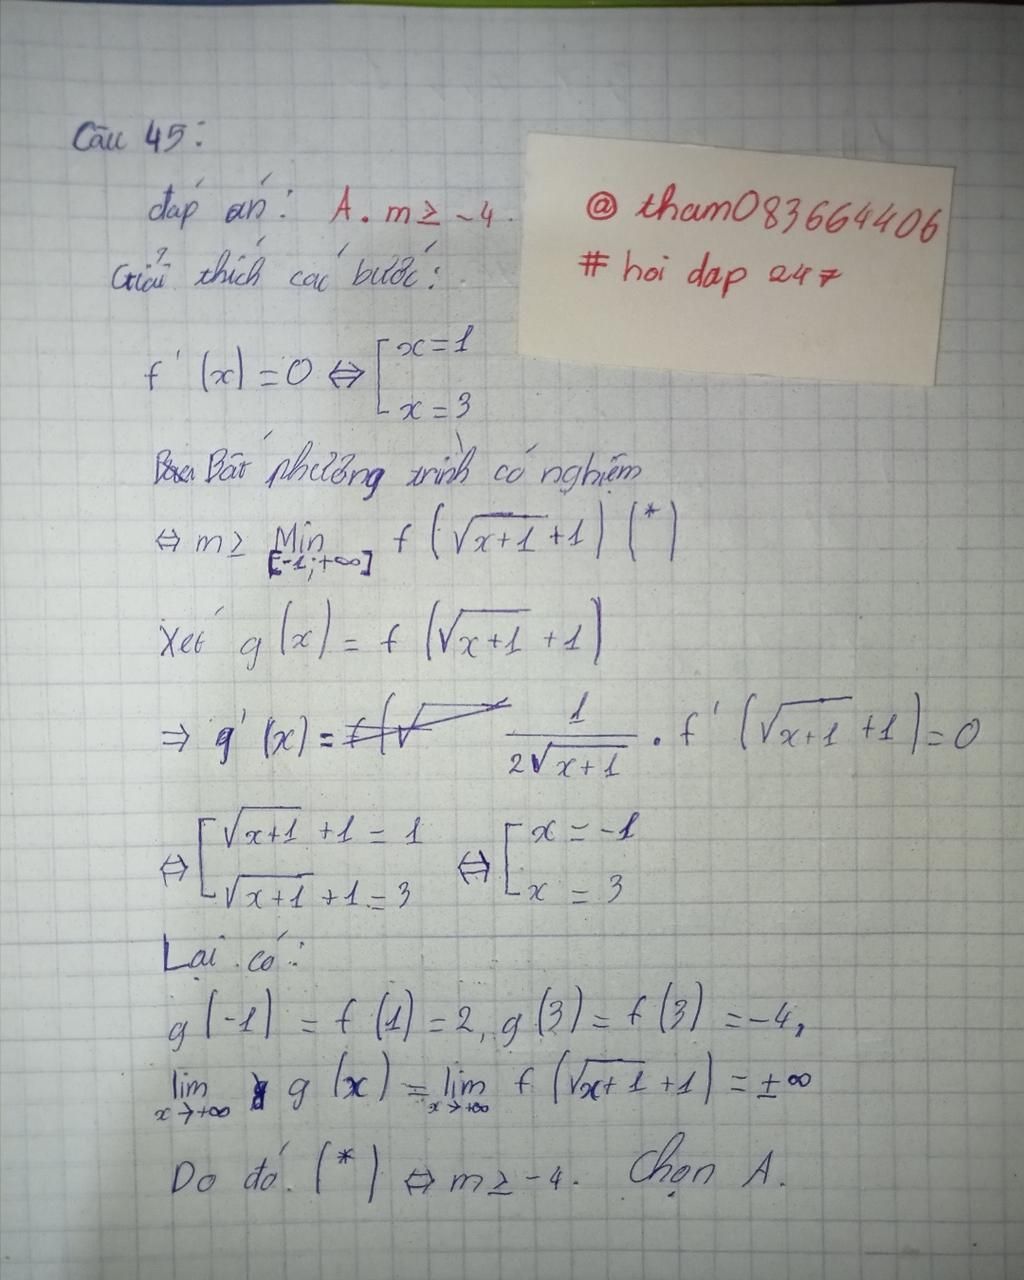 Câu 45:
đáp án: A. m ≥ -4.
@ tham083664406
# hoi dap 247
Giải thích các bước:
f'(x) = 0 ⇔ [ x = 1
x = 3
Bất phương trình có nghiệm
⇔ m ≥ Min f(√x+1 + 1) (*)
[-1; +∞]
Xét g(x) = f(√x+1 + 1)
⇒ g'(x) = 1/2√x+1 . f'(√x+1 + 1) = 0
⇔ [ √x+1 + 1 = 1 ⇔ [ x = -1
√x+1 + 1 = 3 x = 3
Lại có:
g(-1) = f(1) = 2, g(3) = f(3) = -4,
lim g(x) = lim f(√x+1 + 1) = ±∞
x→+∞ x→+∞
Do đó. (*) ⇔ m ≥ -4. Chọn A.